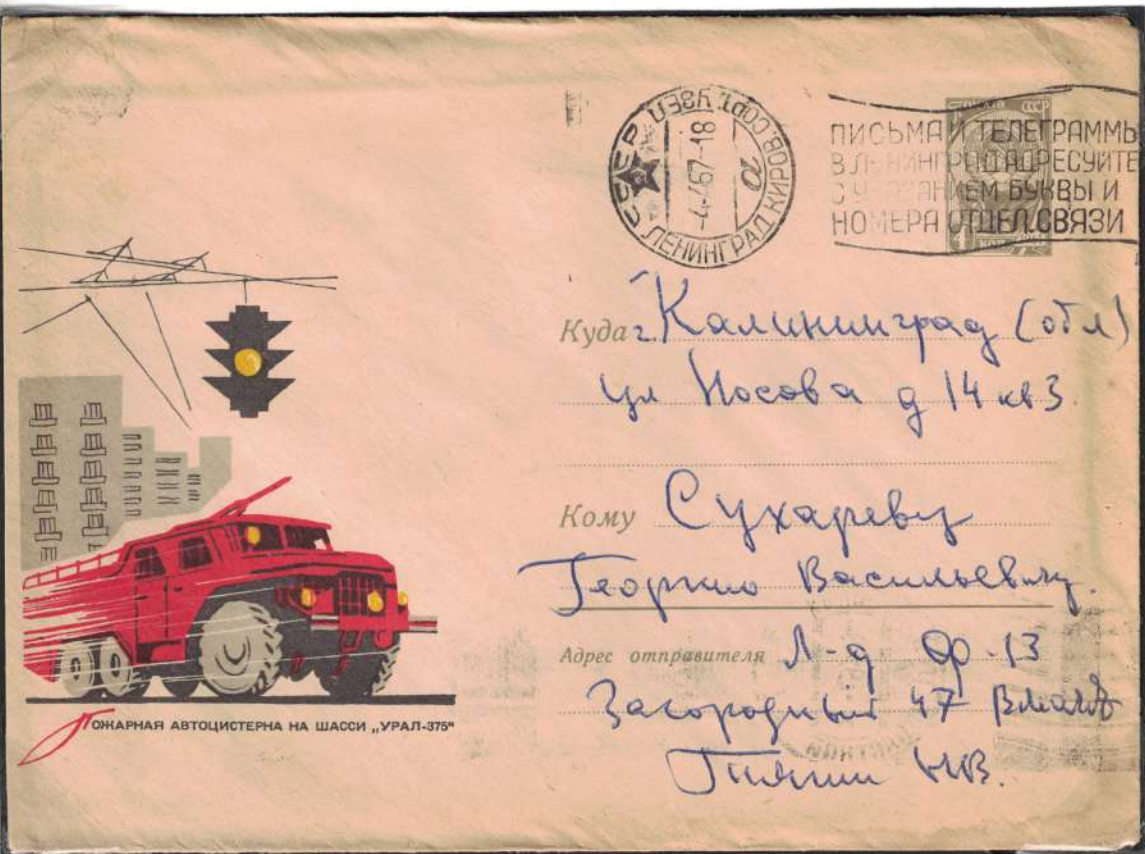 СССР ЛЕНИНГРАД КИРОВ. СОРТ. УЗЕЛ
-4467-18
20
ПОЧТА СССР
ПИСЬМА И ТЕЛЕГРАММЫ
В ЛЕНИНГРАД АДРЕСУЙТЕ
С УКАЗАНИЕМ БУКВЫ И
НОМЕРА ОТДЕЛ. СВЯЗИ
4 КОП
Куда г. Калининград (обл)
ул Носова д 14 кв 3
Кому Сухареву
Георгию Васильевичу.
Адрес отправителя Л-д Ф-13
Загородный 47
ПОЖАРНАЯ АВТОЦИСТЕРНА НА ШАССИ „УРАЛ-375"